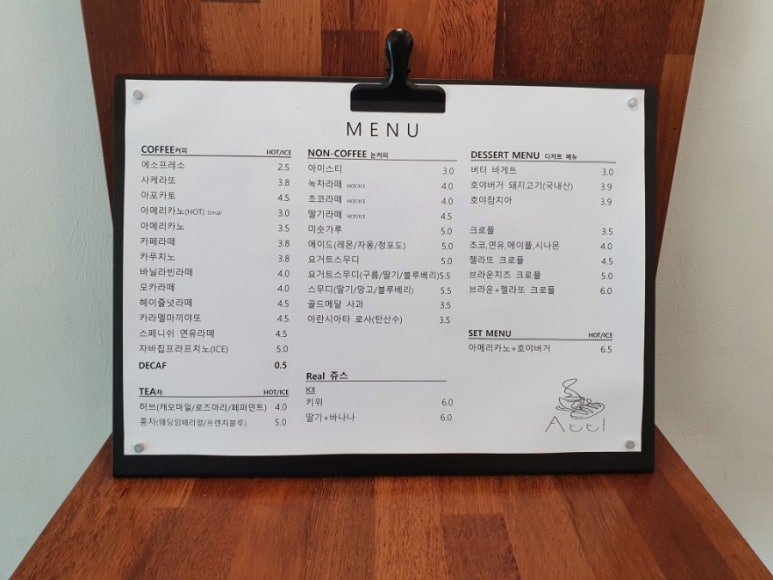 MENU
COFFEE커피 HOT/ICE
에소프레소 2.5
사케라또 3.8
아포카토 4.5
아메리카노(HOT) Small 3.0
아메리카노 3.5
카페라떼 3.8
카푸치노 3.8
바닐라빈라떼 4.0
모카라떼 4.0
헤이즐넛라떼 4.5
카라멜마끼야또 4.5
스페니쉬 연유라떼 4.5
자바칩프라프치노(ICE) 5.0
DECAF 0.5
TEA차 HOT/ICE
허브(캐모마일/로즈마리/페퍼민트) 4.0
홍차(웨딩임페리얼/프렌치블루) 5.0
NON-COFFEE 논커피
아이스티 3.0
녹차라떼 HOT/ICE 4.0
초코라떼 HOT/ICE 4.0
딸기라떼 HOT/ICE 4.5
미숫가루 5.0
에이드(레몬/자몽/청포도) 5.0
요거트스무디 5.0
요거트스무디(구름/딸기/블루베리)5.5
스무디(딸기/망고/블루베리) 5.5
골드메달 사과 3.5
아란시아타 로사(탄산수) 3.5
Real 쥬스
ICE
키위 6.0
딸기+바나나 6.0
DESSERT MENU 디저트 메뉴
버터 바게트 3.0
호야버거 돼지고기(국내산) 3.9
호야참치아 3.9
크로플 3.5
초코,연유,메이플,시나몬 4.0
젤라또 크로플 4.5
브라운치즈 크로플 5.0
브라운+젤라또 크로플 6.0
SET MENU HOT/ICE
아메리카노+호야버거 6.5